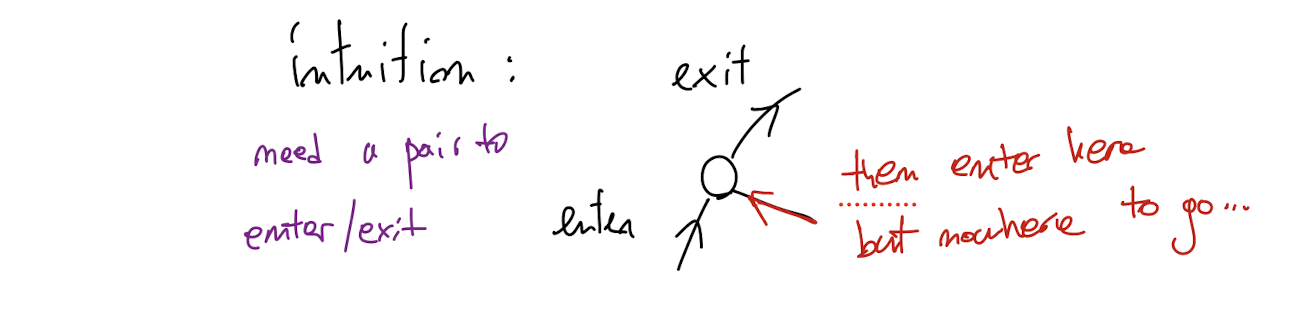 intuition :
need a pair to
enter/exit
exit
enter
then enter here
but nowhere to go...